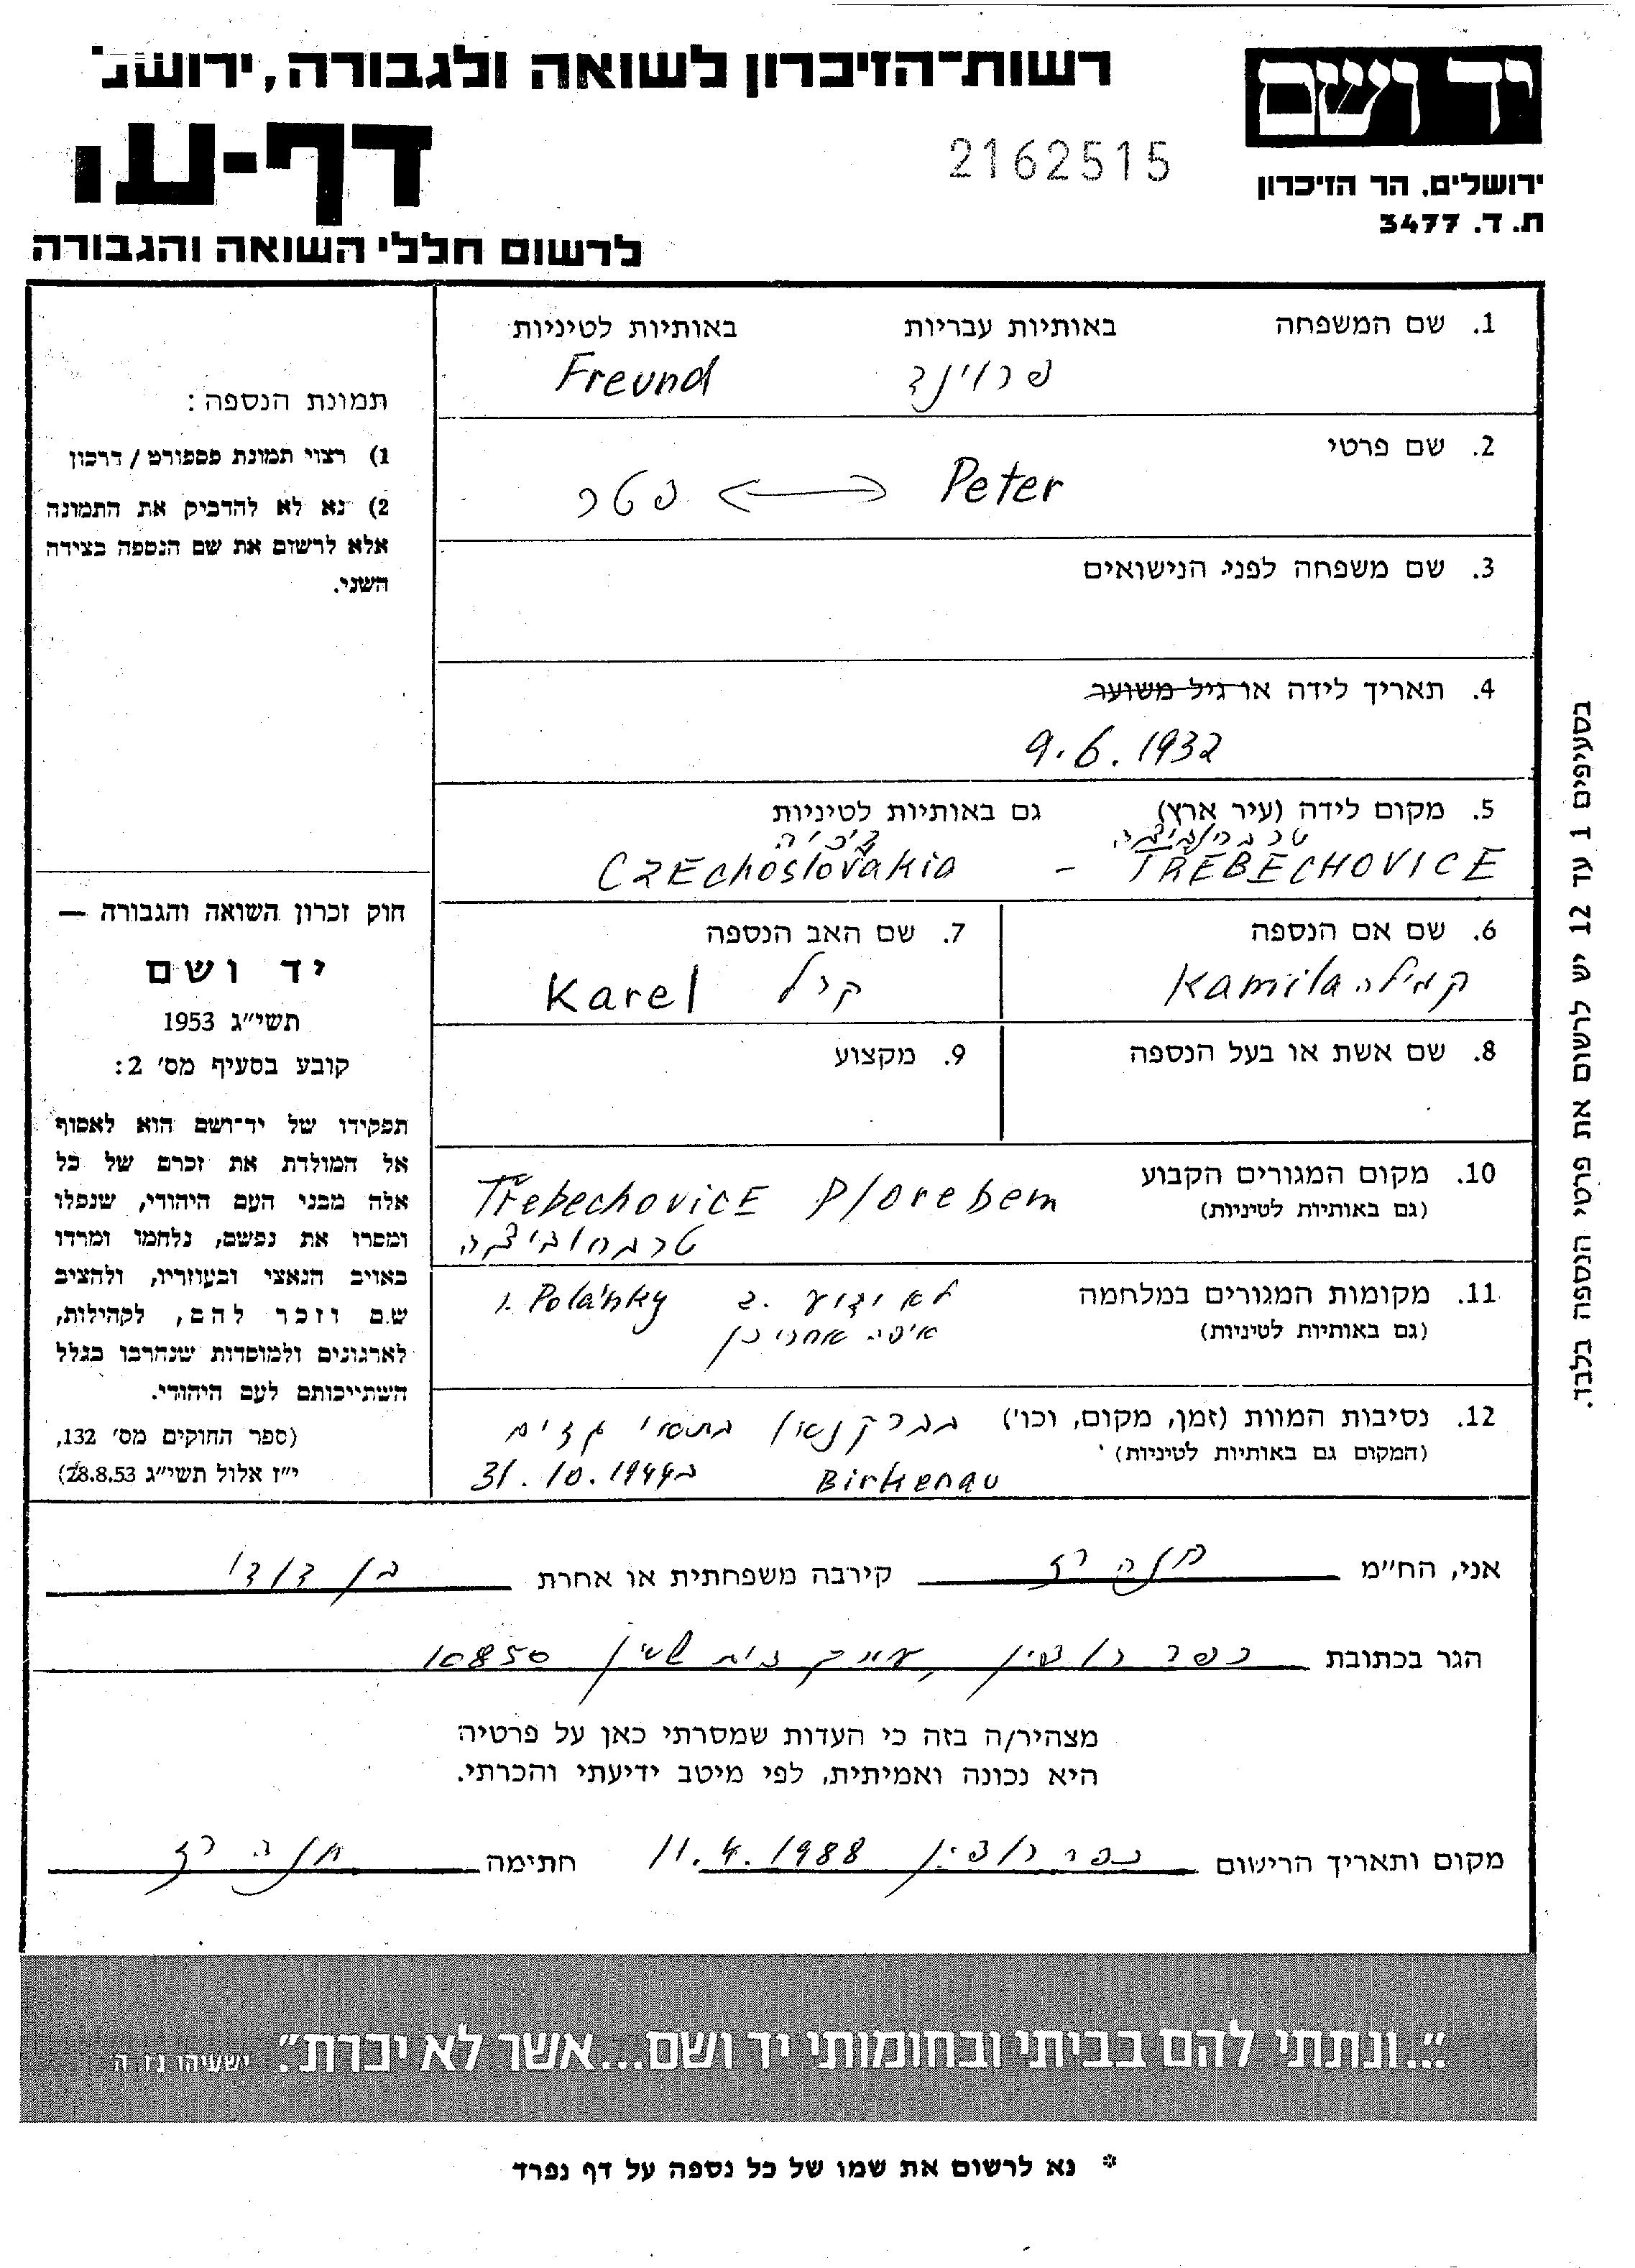 רשות־הזיכרון לשואה ולגבורה, ירושל
יד ושם
2162515
דף-ע
ירושלים, הר הזיכרון
ת. ד. 3477
לרשום חללי השואה והגבורה
1. שם המשפחה באותיות עבריות באותיות לטיניות
פרוינד Freund
2. שם פרטי
Peter פטר
3. שם משפחה לפני הנישואים
4. תאריך לידה או גיל משוער
9.6.1932
5. מקום לידה (עיר ארץ) גם באותיות לטיניות
TŘEBECHOVICE - CZEchoslovakia
6. שם אם הנספה
קמילה Kamila
7. שם האב הנספה
קרל Karel
8. שם אשת או בעל הנספה
9. מקצוע
10. מקום המגורים הקבוע
(גם באותיות לטיניות)
TřebechovicE P/orebem
טרבחוביצה
11. מקומות המגורים במלחמה
(גם באותיות לטיניות)
1. Polánky 2. לא ידוע
איפה אחרי כן
12. נסיבות המוות (זמן, מקום, וכו')
(המקום גם באותיות לטיניות)
בברקנאו בתאי גזים
Birkenau ב 31.10.1944
תמונת הנספה:
1) רצוי תמונת פספורט / דרכון
2) נא לא להדביק את התמונה
אלא לרשום את שם הנספה בצידה
השני.
חוק זכרון השואה והגבורה —
יד ושם
תשי״ג 1953
קובע בסעיף מס׳ 2:
תפקידו של יד־ושם הוא לאסוף
אל המולדת את זכרם של כל
אלה מבני העם היהודי, שנפלו
ומסרו את נפשם, נלחמו ומרדו
באויב הנאצי ובעוזריו, ולהציב
שם וזכר להם, לקהילות,
לארגונים ולמוסדות שנחרבו בגלל
השתייכותם לעם היהודי.
(ספר החוקים מס׳ 132,
י״ז אלול תשי״ג 28.8.53)
בסעיפים 1 עד 12 יש לרשום את פרטי הנספה בלבד.
אני, הח״מ חנה רז קירבה משפחתית או אחרת בן דודי
הגר בכתובת כפר רופין, עמק בית שאן 10850
מצהיר/ה בזה כי העדות שמסרתי כאן על פרטיה
היא נכונה ואמיתית, לפי מיטב ידיעתי והכרתי.
מקום ותאריך הרישום כפר רופין 11.4.1988 חתימה חנה רז
״...ונתתי להם בביתי ובחומותי יד ושם...אשר לא יכרת״. ישעיהו נו, ה
* נא לרשום את שמו של כל נספה על דף נפרד